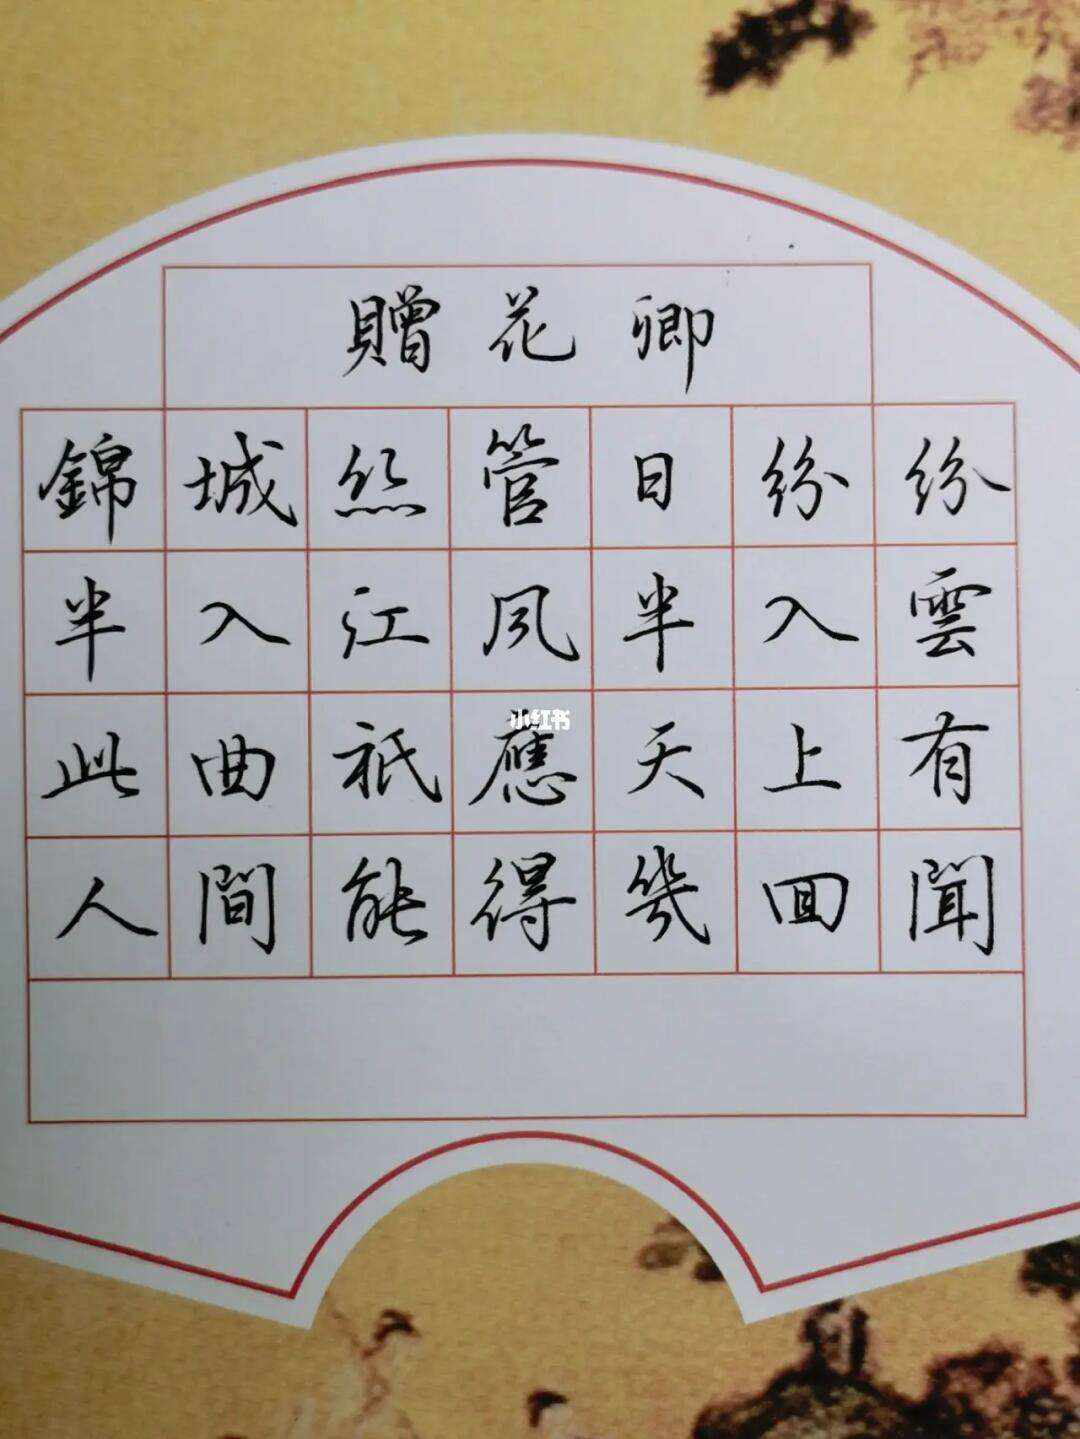 贈花卿
錦城絲管日紛紛
半入江風半入雲
此曲祇應天上有
人間能得幾回聞
小红书